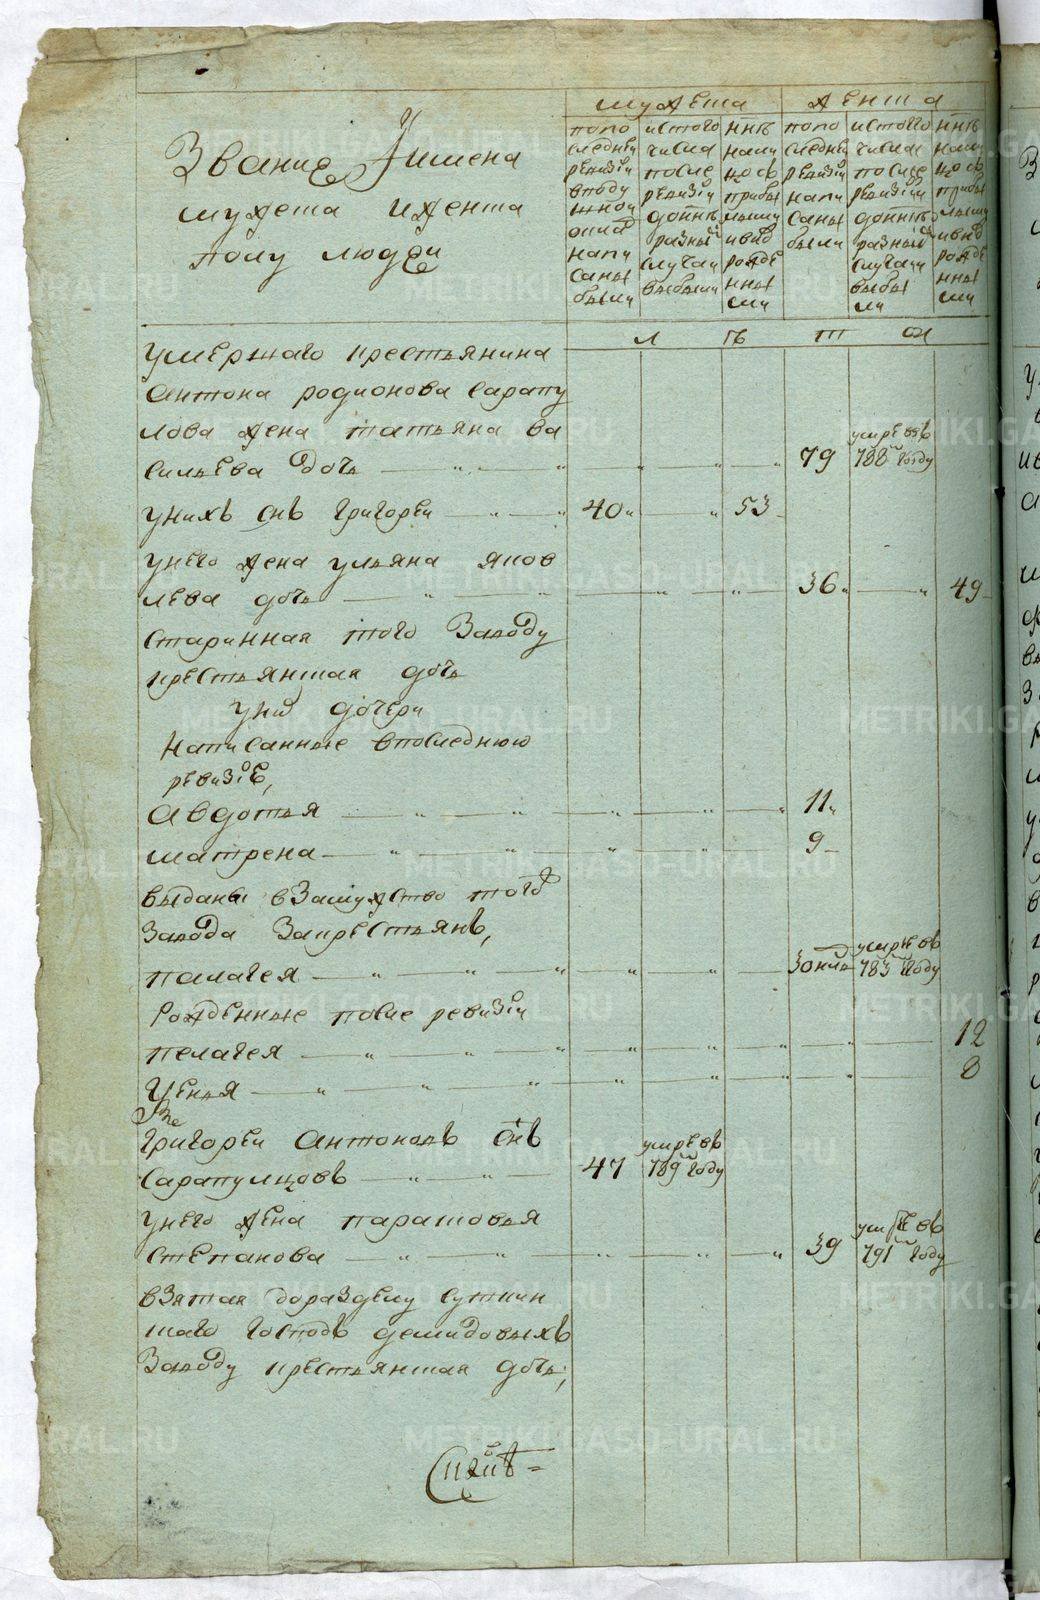 мужеска
женска
Звание и имена
мужеска иженска
полу людеи
попо следнеи ревизiи вподу шнои окла напи саны были
истого числа после ревизiи донне разныи случаи выбыли
нне нали цо съ прибы лыми ивно рожде нны ми
попо следнеи ревизiи напи саны были
истого числа после ревизiи донне разныи случаи выбы ли
нне нали цо съ прибы лыми ивно рожде нны ми
л ѣ т ы
умершаго крестьянина
Антона родионова Сарапу
лова жена татьяна ва
сильева дочь 79 умре въ 788м году
унихъ снъ григореи 40 53
унего жена ульяна яков
лева дочь 36 49
старинная того Заводу
крестьянская дочь
уни дочери
Написанные впоследнюю
ревизiе,
Авдотья 11
матрена 9
выданы взамужство того
завода Закрестьянъ,
палагея 30 нид умре въ 783м году
рожденные после ревизiи
пелагея 12
Ѵ
григореи Антоновъ снъ
Сарапулцовъ 47 умре въ 789м году
унего жена парасковья
степанова 39 умре въ 791м году
взятая доразделу суткин
скаго господъ демидовыхъ
Заводу крестьянская дочь;
METRIKI.GASO-URAL.RU